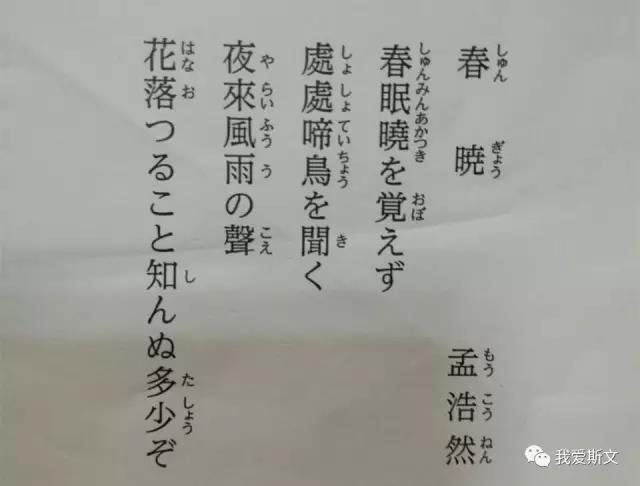 春暁
しゅん ぎょう
孟浩然
もう こう ねん
春眠曉を覚えず
しゅんみんあかつき おぼ
處處啼鳥を聞く
しょ しょ てい ちょう き
夜來風雨の聲
や らい ふう う こえ
花落つること知んぬ多少ぞ
はな お し た しょう
我爱斯文